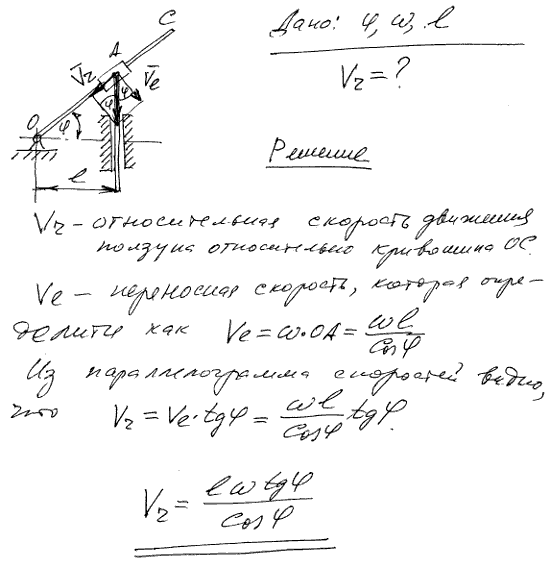 Дано: φ, ω, l
Vr = ?
Решение
C
A
V̄r
V̄e
φ
φ
O
φ
l
Vr – относительная скорость движения
ползуна относительно кривошипа OC.
Ve – переносная скорость, которая опре-
делится как Ve = ω·OA = ωl/cosφ
Из параллелограмма скоростей видно,
что Vr = Ve·tgφ = ωl/cosφ tgφ.
Vr = lω tgφ/cosφ